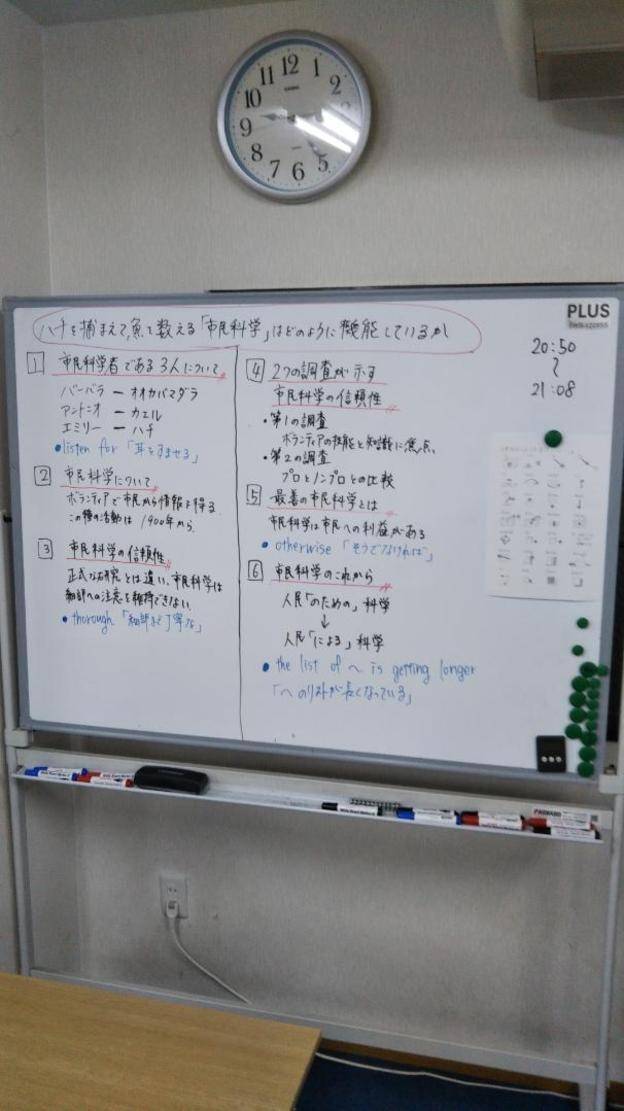 12
1
2
5
6
7
8
9
10
11
ハチを捕まえて魚を数える「市民科学」はどのように機能しているか
PLUS
20:50
〜
21:08
1 市民科学者である3人について
バーバラ ー オオカバマダラ
アントニオ ー カエル
エミリー ー ハチ
•listen for 「耳をすませる」
2 市民科学について
ボランティアで市民から情報を得る
この種の活動は1900年から.
3 市民科学の信頼性
正式な研究とは違い、市民科学は
細部への注意を維持できない.
•thorough「細部まで丁寧な」
4 2つの調査が示す
市民科学の信頼性
•第1の調査
ボランティアの技能と知識に焦点.
•第2の調査
プロとノンプロとの比較
5 最善の市民科学とは
市民科学は市民への利益がある
• otherwise 「そうでなければ」
6 市民科学のこれから
人民「のための」科学
↓
人民「による」科学
• the list of ~ is getting longer
「~のリストが長くなっている」